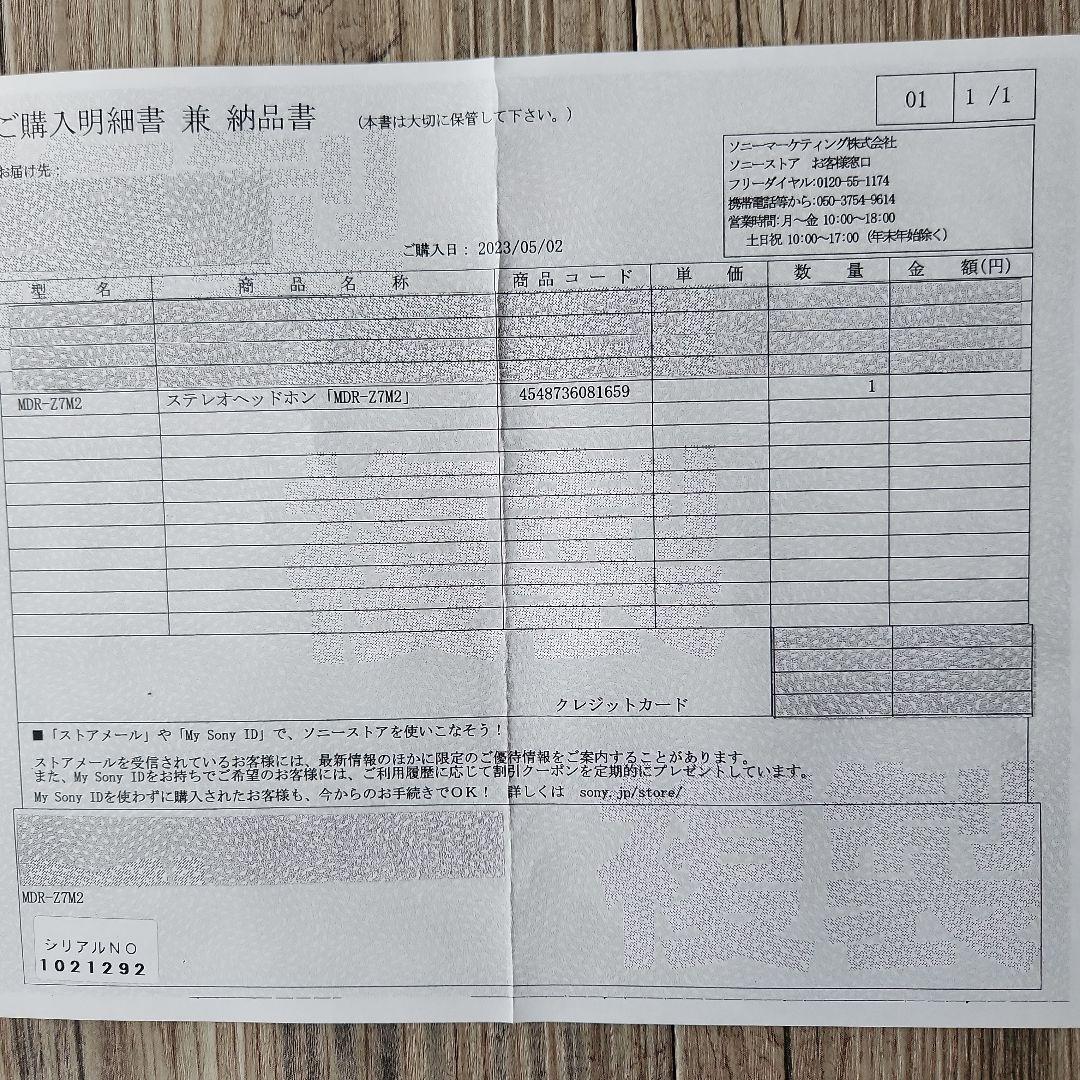 ご購入明細書 兼 納品書 (本書は大切に保管して下さい。)
01 1 /1
お届け先:
ソニーマーケティング株式会社
ソニーストア お客様窓口
フリーダイヤル:0120-55-1174
携帯電話等から:050-3754-9614
営業時間:月~金 10:00~18:00
土日祝 10:00~17:00 (年末年始除く)
ご購入日: 2023/05/02
型名 商品名称 商品コード 単価 数量 金額(円)
MDR-Z7M2 ステレオヘッドホン「MDR-Z7M2」 4548736081659 1
クレジットカード
■「ストアメール」や「My Sony ID」で、ソニーストアを使いこなそう!
ストアメールを受信されているお客様には、最新情報のほかに限定のご優待情報をご案内することがあります。
また、My Sony IDをお持ちでご希望のお客様には、ご利用履歴に応じて割引クーポンを定期的にプレゼントしています。
My Sony IDを使わずに購入されたお客様も、今からのお手続きでOK! 詳しくは sony.jp/store/
MDR-Z7M2
シリアルNO
1021292
複製
複製